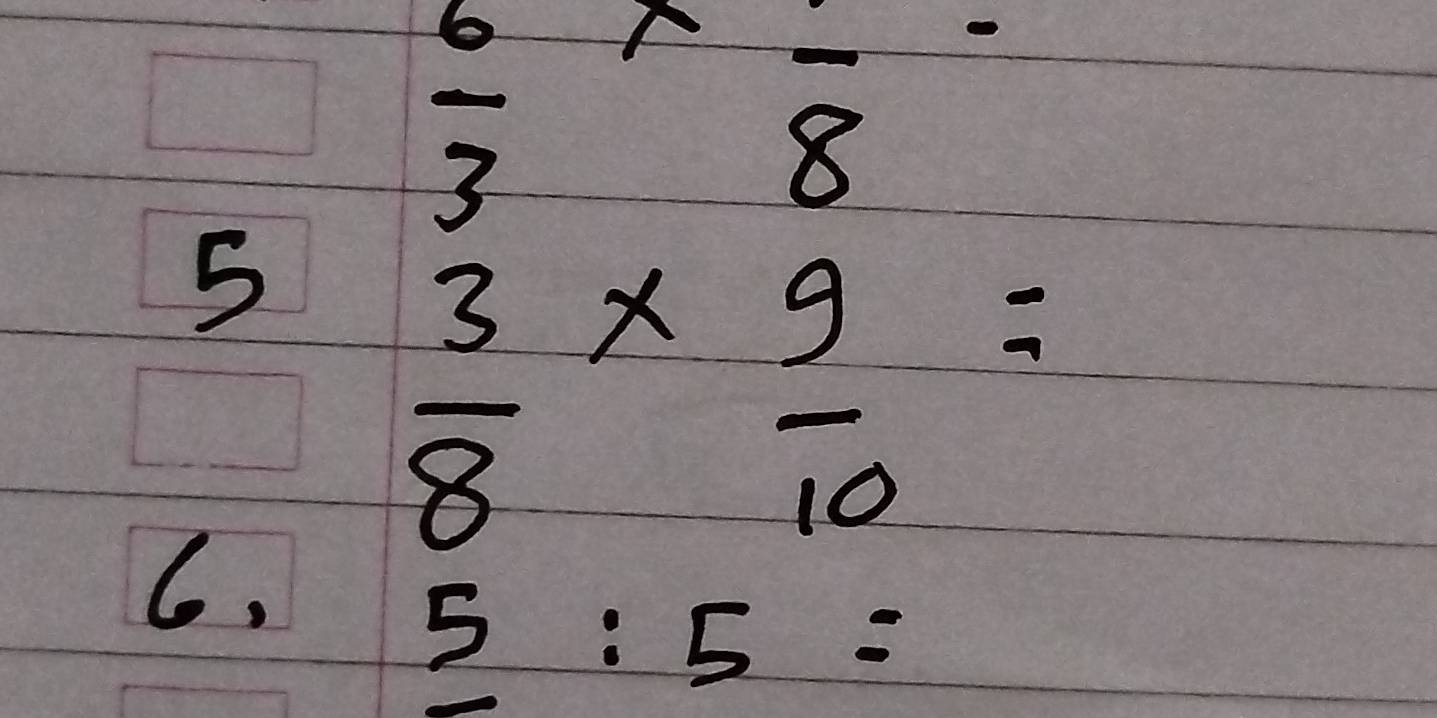 6 ×  -
3 8
5 3 × 9 =
8 10
6. 5 : 5 =